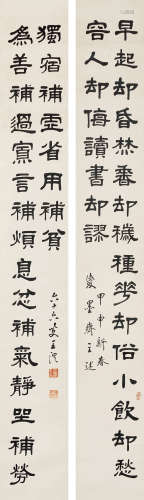 早起却昏焚香却穢種花却俗小飲却愁
容人却侮讀書却謬
甲申新春
墨齋主述
為善補過寡言補煩息忿補氣靜坐補勞
獨宿補虛省用補貧
六六叟王